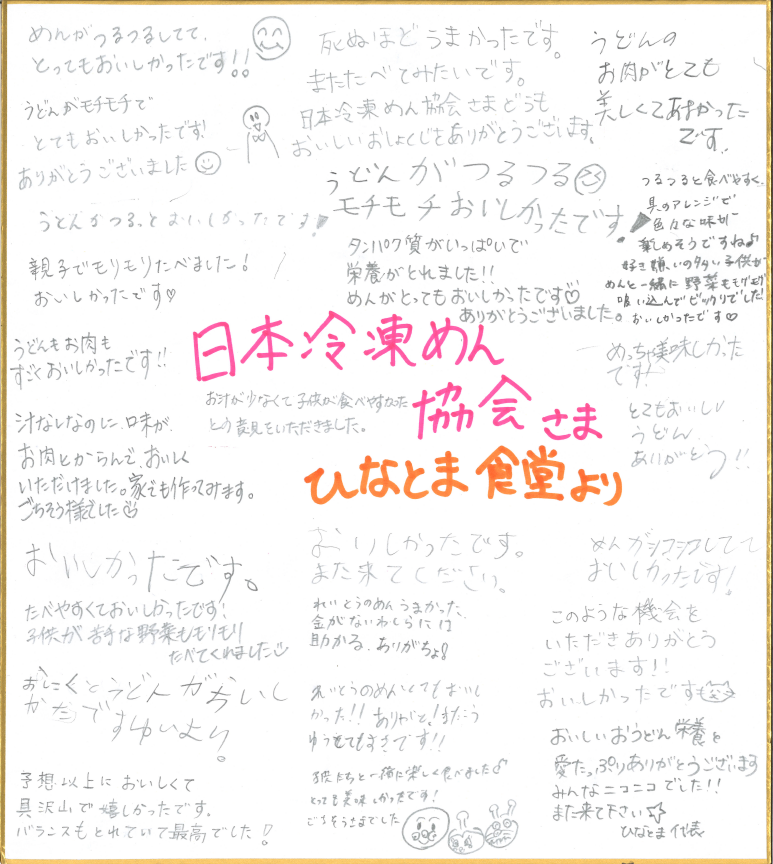 めんがつるつるしてて、
とってもおいしかったです!!
うどんがモチモチで
とてもおいしかったです!
ありがとうございました
死ぬほどうまかったです。
またたべてみたいです。
日本冷凍めん協会さまどうも
おいしいおしょくじをありがとうございます。
うどんの
お肉がとても
美しくてあまかった
です。
うどんがつるっとおいしかったです!
うどんがつるつる
モチモチおいしかったです!
つるつると食べやすく、
具のアレンジで
色々な味が
楽めそうですね♪
好き嫌いの多い子供が
めんと一緒に野菜もモグモグ
喰い込んでビックリでした!
おいしかったです♡
親子でモリモリたべました!
おいしかったです♡
タンパク質がいっぱいで
栄養がとれました!!
めんがとってもおいしかったです♡
ありがとうございました。
うどんもお肉も
すごくおいしかったです!!
日本冷凍めん
協会さま
ひなとま食堂より
お汁が少なくて子供が食べやすかった
という意見をいただきました。
めっちゃ美味しかった
です!
とてもおいしい
うどん
ありがとう!!
汁なしなのに、味が、
お肉とからんで、おいしく
いただけました。家でも作ってみます。
ごちそう様でした
おいしかったです。
おいしかったです。
また来てください。
めんがシコシコしてて
おいしかったです!
たべやすくておいしかったです!
子供が苦手な野菜ももりもり
たべてくれました
れいとうのめんうまかった
金がないわしらには
助かる、ありがちょ!
このような機会を
いただきありがとう
ございます!!
おいしかったです
おにくとうどんがおいし
かったですゆいより。
れいとうのめんとてもおいし
かった!! ありがと!
です!!
おいしいおうどん栄養と
愛たっぷりありがとうございます
みんなニコニコでした!!
また来て下さい☆
ひなとま代表
予想以上においしくて
具沢山で嬉しかったです。
バランスもとれていて最高でした!
孩たちと一緒に楽しく食べました♪
とっても美味しかったです!
ごちそうさまでした